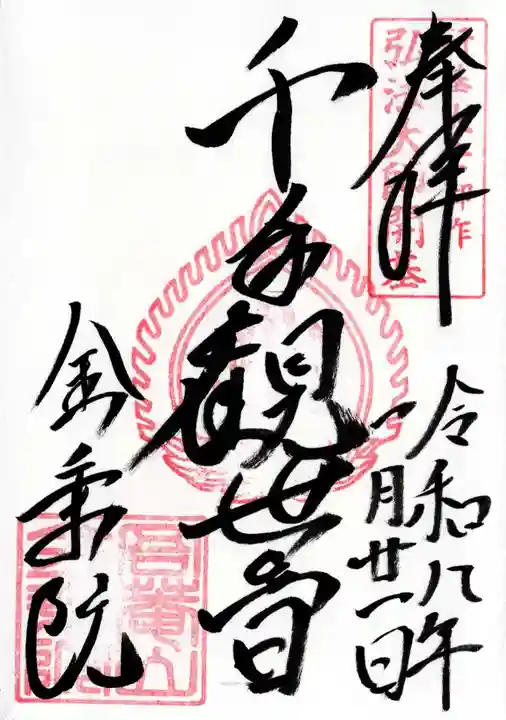 奉拝
弘法大師開基
令和八年
一月廿一日
千手観世音
金乗院